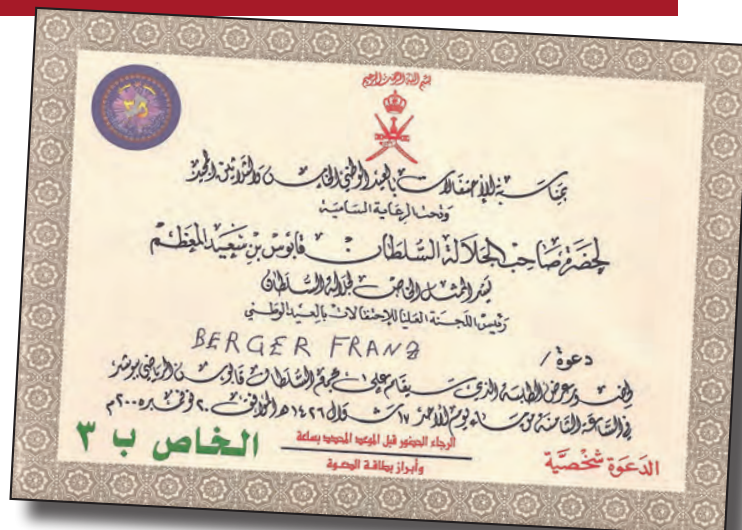 بسم الله الرحمن الرحيم
٣٥
بمناسبة الإحتفالات بالعيد الوطني الخامس والثلاثين المجيد
وتحت الرعاية السامية
لحضرة صاحب الجلالة السلطان قابوس بن سعيد المعظم
يتشرف الممثل الخاص لجلالة السلطان
رئيس اللجنة العليا للإحتفالات بالعيد الوطني
دعوة / BERGER FRANZ
لحضور عرض الطلبة الذي سيقام على مجمع السلطان قابوس الرياضي ببوشر
في الساعة الثامنة من مساء يوم الأحد ١٧ شوال ١٤٢٦ هـ الموافق ٢٠ نوفمبر ٢٠٠٥م
الدعوة شخصية
الرجاء الحضور قبل الموعد المحدد بساعة
وأبراز بطاقة الدعوة
الخاص ب ٣